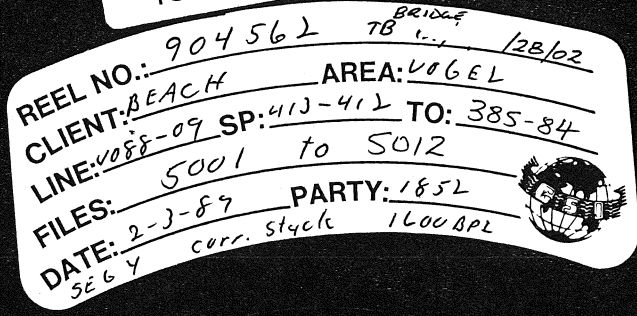 BRIDGE
REEL NO.: 904562 TB /28/02
CLIENT: BEACH AREA: VOGEL
LINE: VO88-09 SP: 413-412 TO: 385-84
FILES: 5001 to 5012
DATE: 2-3-89 PARTY: 1852
SEGY corr. stack 1600BPI